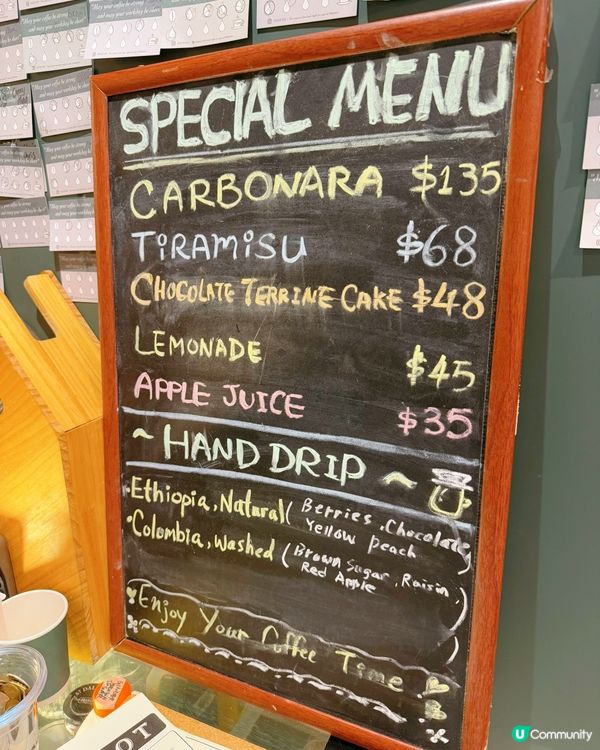 SPECIAL MENU
CARBONARA $135
TiRAMiSU $68
CHOCOLATE TERRINE CAKE $48
LEMONADE $45
APPLE JUICE $35
~ HAND DRIP ~
·Ethiopia, Natural ( Berries, Chocolate,
Yellow peach )
·Colombia, washed ( Brown Sugar, Raisin,
Red Apple )
Enjoy Your Coffee Time
OT
U Community